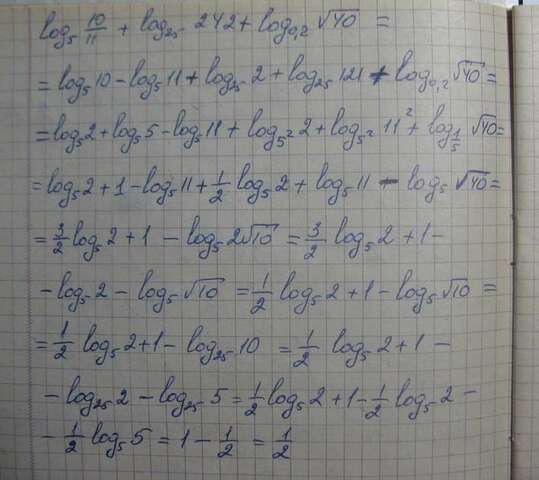 log₅ 10/11 + log₂₅ 242 + log₀,₂ √40 =
= log₅10 - log₅11 + log₂₅2 + log₂₅121 + log₀,₂√40 =
= log₅2 + log₅5 - log₅11 + log₅²2 + log₅²11² + log_{1/5} √40 =
= log₅2 + 1 - log₅11 + 1/2 log₅2 + log₅11 - log₅ √40 =
= 3/2 log₅2 + 1 - log₅2√10 = 3/2 log₅2 + 1 -
- log₅2 - log₅√10 = 1/2 log₅2 + 1 - log₅√10 =
= 1/2 log₅2 + 1 - log₂₅10 = 1/2 log₅2 + 1 -
- log₂₅2 - log₂₅5 = 1/2 log₅2 + 1 - 1/2 log₅2 -
- 1/2 log₅5 = 1 - 1/2 = 1/2